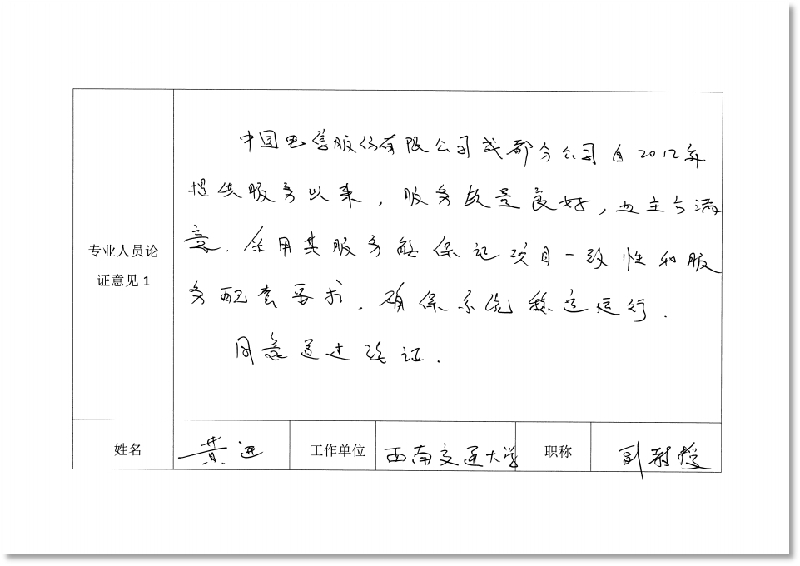 中国电信股份有限公司成都分公司自2012年
提供服务以来，服务质量良好，业主与满
意．使用其服务能保证项目一致性和服
务配套要求，确保系统稳定运行．
同意通过论证．
专业人员论
证意见1
姓名 黄进 工作单位 西南交通大学 职称 副教授